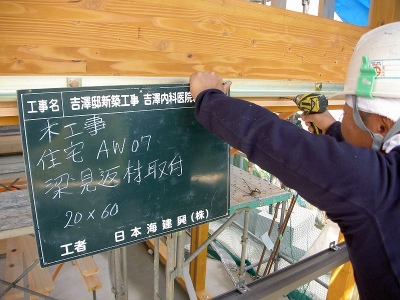 工事名 吉澤邸新築工事 吉澤内科医院
木工事
住宅 AW07
梁見返材取付
20×60
工者 日本海建興(株)